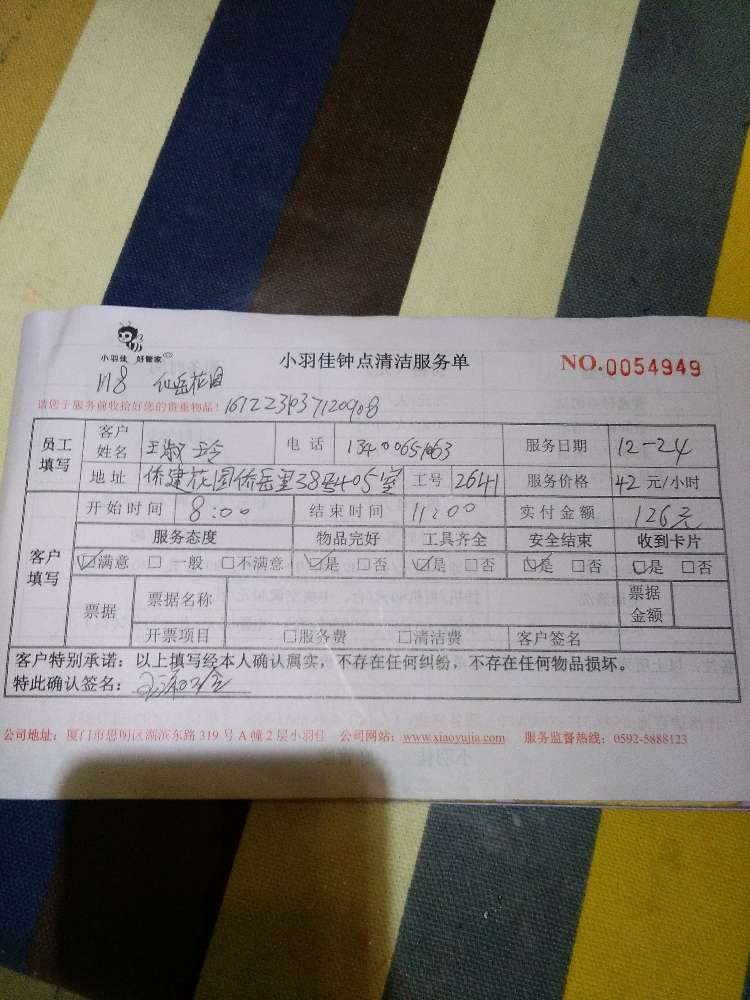 小羽佳 好管家
小羽佳钟点清洁服务单 NO.0054949
118 仙岳花园
请您于服务前收拾好您的贵重物品!
员工填写 客户姓名 王淑玲 电话 13400651063 服务日期 12-24
地址 侨建花园侨岳里38号405室 工号 2641 服务价格 42 元/小时
客户填写 开始时间 8:00 结束时间 11:00 实付金额 126元
服务态度 物品完好 工具齐全 安全结束 收到卡片
☑满意 □一般 □不满意 ☑是 □否 ☑是 □否 ☑是 □否 ☑是 □否
票据 票据名称 票据金额
开票项目 □服务费 □清洁费 客户签名
客户特别承诺：以上填写经本人确认属实，不存在任何纠纷，不存在任何物品损坏。
特此确认签名：
公司地址：厦门市思明区湖滨东路 319 号 A 幢 2 层小羽佳 公司网站：www.xiaoyujia.com 服务监督热线：0592-5888123